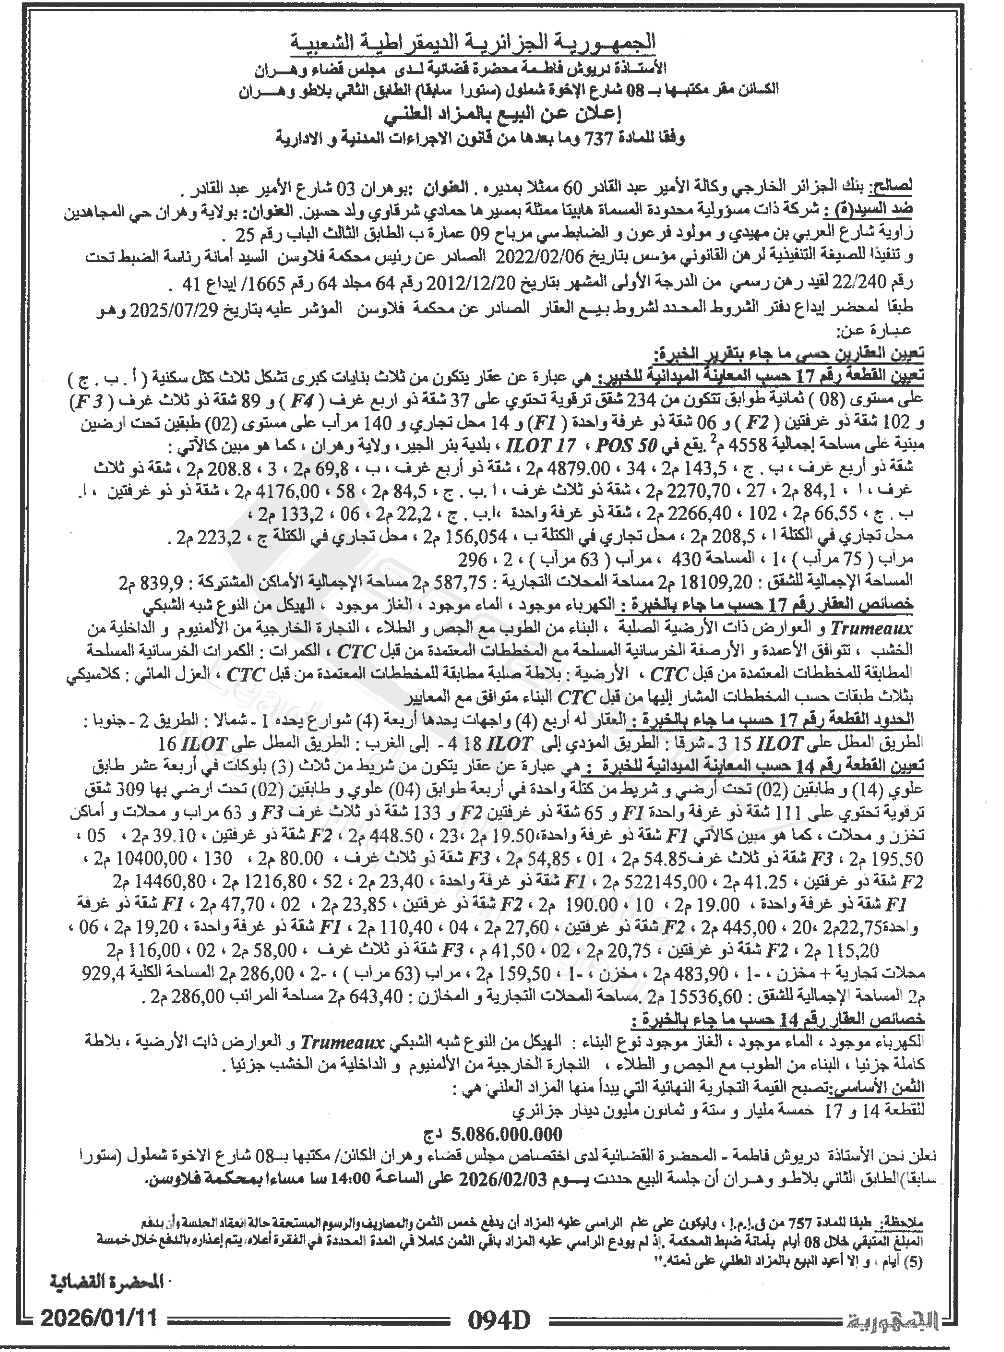 الجمهورية الجزائرية الديمقراطية الشعبية
الأستاذة دريوش فاطمة محضرة قضائية لدى مجلس قضاء وهران
الكائن مقر مكتبها بـ 08 شارع الإخوة شملول (ستورا سابقا) الطابق الثاني بلاطو وهران
إعلان عن البيع بالمزاد العلني
وفقا للمادة 737 وما بعدها من قانون الاجراءات المدنية و الادارية
لصالح: بنك الجزائر الخارجي وكالة الأمير عبد القادر 60 ممثلا بمديره . العنوان :بوهران 03 شارع الأمير عبد القادر .
ضد السيد(ة) : شركة ذات مسؤولية محدودة المسماة هابيتا ممثلة بمسيرها حمادي شرقاوي ولد حسين. العنوان: بولاية وهران حي المجاهدين
زاوية شارع العربي بن مهيدي و مولود فرعون و الضابط سي مرباح 09 عمارة ب الطابق الثالث الباب رقم 25 .
و تنفيذا للصيغة التنفيذية لرهن القانوني مؤسس بتاريخ 2022/02/06 الصادر عن رئيس محكمة فلاوسن السيد أمانة رئاسة الضبط تحت
رقم 22/240 لقيد رهن رسمي من الدرجة الأولى المشهر بتاريخ 2012/12/20 رقم 64 مجلد 64 رقم 1665/ إيداع 41 .
طبقا لمحضر إيداع دفتر الشروط المحدد لشروط بيع العقار الصادر عن محكمة فلاوسن المؤشر عليه بتاريخ 2025/07/29 وهو
عبارة عن:
تعيين العقارين حسي ما جاء بتقرير الخبرة:
تعيين القطعة رقم 17 حسب المعاينة الميدانية للخبير: هي عبارة عن عقار يتكون من ثلاث بنايات كبرى تشكل ثلاث كتل سكنية ( أ . ب . ج )
على مستوى (08) ثمانية طوابق تتكون من 234 شقق ترقوية تحتوي على 37 شقة ذو اربع غرف ( F4) و 89 شقة ذو ثلاث غرف ( F 3)
و 102 شقة ذو غرفتين ( F2) و 06 شقة ذو غرفة واحدة ( F1) و 14 محل تجاري و 140 مرآب على مستوى (02) طبقين تحت ارضين
مبنية على مساحة إجمالية 4558 م2 .يقع في ILOT 17 ، POS 50 ، بلدية بئر الجير، ولاية وهران ، كما هو مبين كالآتي :
شقة ذو أربع غرف ، ب . ج ، 143,5 م2 ، 34 ، 4879.00 م2 ، شقة ذو أربع غرف ، ب ، 69,8 م2 ، 3 ، 208.8 م2 ، شقة ذو ثلاث
غرف ، ا ، 84,1 م2 ، 27 ، 2270,70 م2 ، شقة ذو ثلاث غرف ، ا . ب . ج ، 84,5 م2 ، 58 ، 4176,00 م2 ، شقة ذو ذو غرفتين ، ا.
ب . ج ، 66,55 م2 ، 102 ، 2266,40 م2 ، شقة ذو غرفة واحدة ،ا.ب . ج ، 22,2 م2 ، 06 ، 133,2 م2 ،
محل تجاري في الكتلة ا ، 208,5 م2 ، محل تجاري في الكتلة ب ، 156,054 م2 ، محل تجاري في الكتلة ج ، 223,2 م2 .
مراب ( 75 مرآب ) ،1 ، المساحة 430 ، مرآب ( 63 مرآب ) ، 2 ، 296
المساحة الإجمالية للشقق : 18109,20 م2 مساحة المحلات التجارية : 587,75 م2 مساحة الإجمالية الأماكن المشتركة : 839,9 م2
خصائص العقار رقم 17 حسب ما جاء بالخبرة : الكهرباء موجود ، الماء موجود ، الغاز موجود ، الهيكل من النوع شبه الشبكي
Trumeaux و العوارض ذات الأرضية الصلبة ، البناء من الطوب مع الجص و الطلاء ، النجارة الخارجية من الألمنيوم و الداخلية من
الخشب ، تتوافق الأعمدة و الأرصفة الخرسانية المسلحة مع المخططات المعتمدة من قبل CTC ، الكمرات : الكمرات الخرسانية المسلحة
المطابقة للمخططات المعتمدة من قبل CTC ، الأرضية : بلاطة صلبة مطابقة للمخططات المعتمدة من قبل CTC ، العزل المائي : كلاسيكي
بثلاث طبقات حسب المخططات المشار إليها من قبل CTC البناء متوافق مع المعايير
الحدود القطعة رقم 17 حسب ما جاء بالخبرة : العقار له أربع (4) واجهات يحدها أربعة (4) شوارع يحده 1- شمالا : الطريق 2- جنوبا :
الطريق المطل على ILOT 15 3- شرقا : الطريق المؤدي إلى ILOT 18 4- إلى الغرب : الطريق المطل على ILOT 16
تعيين القطعة رقم 14 حسب المعاينة الميدانية للخبرة : هي عبارة عن عقار يتكون من شريط من ثلاث (3) بلوكات في أربعة عشر طابق
علوي (14) و طابقين (02) تحت أرضي و شريط من كتلة واحدة في أربعة طوابق (04) علوي و طابقين (02) تحت أرضي بها 309 شقق
ترقوية تحتوي على 111 شقة ذو غرفة واحدة F1 و 65 شقة ذو غرفتين F2 و 133 شقة ذو ثلاث غرف F3 و 63 مراب و محلات و أماكن
تخزن و محلات ، كما هو مبين كالآتي F1 شقة ذو غرفة واحدة،19.50 م2 ،23 ، 448.50 م2 ، F2 شقة ذو غرفتين ، 39.10 م2 ، 05 ،
195.50 م2 ، F3 شقة ذو ثلاث غرف54.85 م2 ، 01 ، 54,85 م2 ، F3 شقة ذو ثلاث غرف ، 80.00 م2 ، 130 ، 10400,00 م2 ،
F2 شقة ذو غرفتين ، 41.25 م2 ، 522145,00 م2 ، F1 شقة ذو غرفة واحدة ، 23,40 م2 ، 52 ، 1216,80 م2 ، 14460,80 م2
F1 شقة ذو غرفة واحدة ، 19.00 م2 ، 10 ، 190.00 م2 ، F2 شقة ذو غرفتين ، 23,85 م2 ، 02 ، 47,70 م2 ، F1 شقة ذو غرفة
واحدة22,75م2 ،20 ، 445,00 م2 ، F2 شقة ذو غرفتين ، 27,60 م2 ، 04 ، 110,40 م2 ، F1 شقة ذو غرفة واحدة ، 19,20 م2 ، 06 ،
115,20 م2 ، F2 شقة ذو غرفتين ، 20,75 م2 ، 02 ، 41,50 م ، F3 شقة ذو ثلاث غرف ، 58,00 م2 ، 02 ، 116,00 م2
محلات تجارية + مخزن ، -1 ، 483,90 م2 ، مخزن ، -1 ، 159,50 م2 ، مراب (63 مرآب ) ، -2 ، 286,00 م2 المساحة الكلية 929,4
م2 المساحة الإجمالية للشقق : 15536,60 م2 .مساحة المحلات التجارية و المخازن : 643,40 م2 مساحة المرائب 286,00 م2 .
خصائص العقار رقم 14 حسب ما جاء بالخبرة :
الكهرباء موجود ، الماء موجود ، الغاز موجود نوع البناء : الهيكل من النوع شبه الشبكي Trumeaux و العوارض ذات الأرضية ، بلاطة
كاملة جزئيا ، البناء من الطوب مع الجص و الطلاء ، النجارة الخارجية من الألمنيوم و الداخلية من الخشب جزئيا .
الثمن الأساسي:تصبح القيمة التجارية النهائية التي يبدأ منها المزاد العلني هي :
للقطعة 14 و 17 خمسة مليار و ستة و ثمانون مليون دينار جزائري
5.086.000.000 دج
نعلن نحن الأستاذة دريوش فاطمة - المحضرة القضائية لدى اختصاص مجلس قضاء وهران الكائن/ مكتبها بـ08 شارع الاخوة شملول (ستورا
سابقا)الطابق الثاني بلاطو وهران أن جلسة البيع حددت يوم 2026/02/03 على الساعة 14:00 سا مساءا بمحكمة فلاوسن.
ملاحظة: طبقا للمادة 757 من ق.إ.م.إ ، وليكون على علم الراسي عليه المزاد أن يدفع خمس الثمن والمصاريف والرسوم المستحقة حالة انعقاد الجلسة وأن يدفع
المبلغ المتبقي خلال 08 أيام بأمانة ضبط المحكمة .إذ لم يودع الراسي عليه المزاد باقي الثمن كاملا في المدة المحددة في الفقرة أعلاه، يتم إعذاره بالدفع خلال خمسة
(5) أيام ، و إلا أعيد البيع بالمزاد العلني على ذمته."
المحضرة القضائية
الجمهورية
094D
2026/01/11